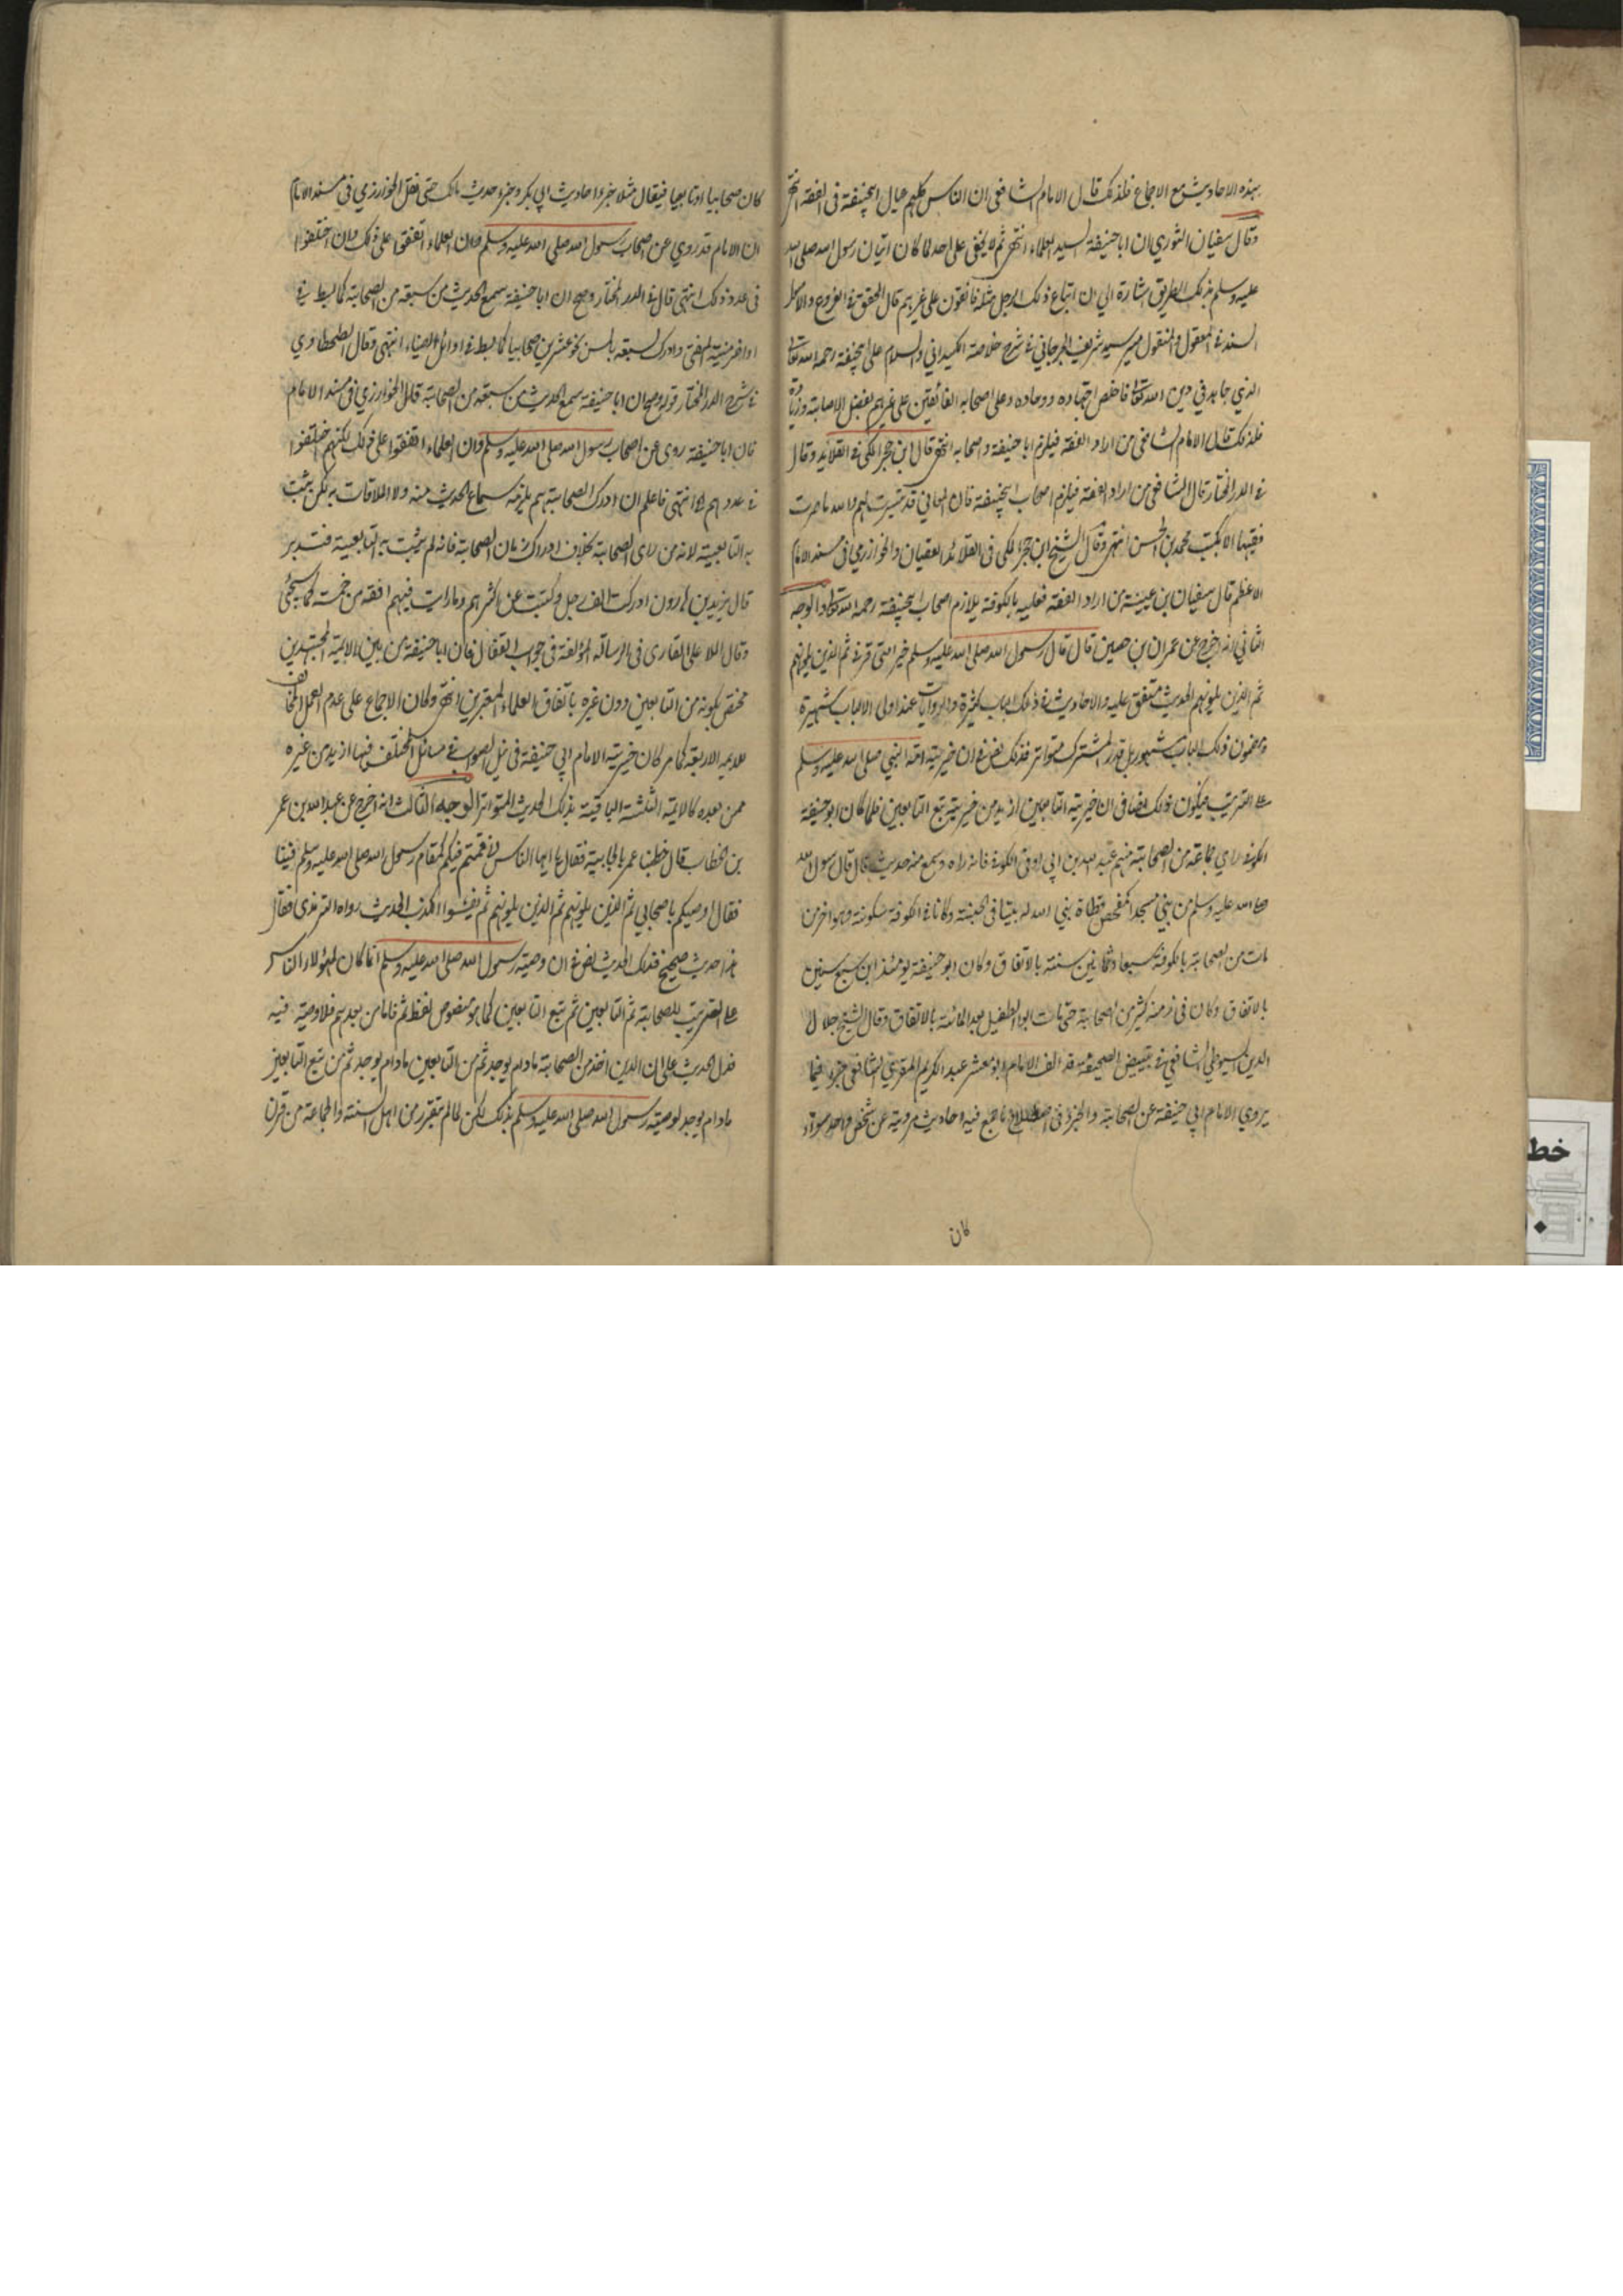 بهذه الاحاديث مع الاجماع فلذلك قال الامام الشافعي ان الناس كلهم عيال ابيحنيفة في الفقه انتهى
وقال سفيان الثوري ان ابا حنيفة لسيد العلماء انتهى ثم لا يخفى على احد لما كان اتيان رسول الله صلى الله
عليه وسلم بذلك الطريق اشارة الى ان اتباع ذلك الرجل مثله فائقون على غيرهم قال المحقق في الفروع والاصل
السند في المعقول والمنقول مير سيد شريف الجرجاني في شرح خلاصة الكيداني والسلام على ابيحنيفة رحمه الله تعالى
الذي جاهد في دين الله تعالى فاخلص اجتهاده ووداده وعلى اصحابه الفائقين على غيرهم بفضل الاصابة وزيادة
فلذلك قال الامام الشافعي من اراد الفقه فيلزم ابا حنيفة واصحابه انتهى قال ابن حجر المكي في القلائد وقال
في الدر المختار قال الشافعي من اراد الفقه فيلزم اصحاب ابيحنيفة فان المعاني قد تيسرت لهم والله ما صرت
فقيها الا بكتب محمد بن الحسن انتهى وقال الشيخ ابن حجر المكي في القلائد العقيان والخوارزمي في مسند الامام
الاعظم قال سفيان بن عيينة من اراد الفقه فعليه بالكوفة يلازم اصحاب ابيحنيفة رحمه الله تعالى والوجه
الثاني انه اخرج عن عمران بن حصين قال قال رسول الله صلى الله عليه وسلم خير امتي قرني ثم الذين يلونهم
ثم الذين يلونهم الحديث متفق عليه والاحاديث في ذلك الباب كثيرة والروايات عند اولى الالباب شهيرة
ومضمون ذلك الباب مشهور بل قدر المشترك متواتر فذلك نص في ان خيرية امة النبي صلى الله عليه وسلم
على الترتيب فيكون ذلك نصا في ان خيرية التابعين ازيد من خيرية تبع التابعين فلما كان ابو حنيفة
الكوفة راى جماعة من الصحابة منهم عبد الله بن ابي اوفى الكوفة فانه راه وسمع منه حديث قال قال رسول الله
صلى الله عليه وسلم من بنى مسجدا كمفحص قطاة بنى الله له بيتا في الجنة وكانا في الكوفة سكونة وهو اخر من
مات من الصحابة بالكوفة سبعا وثمانين سنة بالاتفاق وكان ابو حنيفة يومئذ ابن سبع سنين
بالاتفاق وكان في زمنه كثير من الصحابة حتى مات ابو الطفيل بعد المائة بالاتفاق وقال الشيخ جلال
الدين السيوطي الشافعي في تبييض الصحيفة قد الف الامام ابو معشر عبد الكريم المقري الشافعي جزء فيما
يروي الامام ابي حنيفة عن الصحابة والجزء في اصطلاح ما جمع فيه احاديث مروية عن شخص واحد سواء
كان
كان صحابيا او تابعيا فيقال مثلا جزء احاديث ابي بكر وجزء حديث مالك حتى نقل الخوارزمي في مسند الامام
ان الامام قد روي عن اصحاب رسول الله صلى الله عليه وسلم فان العلماء اتفقوا على ذلك وان اختلفوا
في عدد ذلك انتهى قال في الدر المختار وصح ان ابا حنيفة سمع الحديث من سبعة من الصحابة كما بسط في
اواخر منية المفتي وادرك لسبقه بالسن نحو عشرين صحابيا كما بسط في اوائل الضياء انتهى وقال الطحطاوي
في شرح الدر المختار قوله وصح ان ابا حنيفة سمع الحديث من سبعة من الصحابة قال الخوارزمي في مسند الامام
فان ابا حنيفة روى عن اصحاب رسول الله صلى الله عليه وسلم فان العلماء اتفقوا على ذلك لكنهم اختلفوا
في عددهم انتهى فاعلم ان ادرك الصحابة لم يلزمه سماع الحديث منه ولا الملاقات به لكن يثبت
به التابعية لانه من راى الصحابة بخلاف ادراك زمان الصحابة فانه لم يثبت به التابعية فتدبر
قال يزيد بن هارون ادركت الف رجل وكتبت عن اكثرهم وما رايت فيهم افقه من خمسة كما سيجئ
وقال الملا على القارى في الرسالة المؤلفة في جواب القفال فان ابا حنيفة من بين الائمة المجتهدين
مختص بكونه من التابعين دون غيره باتفاق العلماء المعتبرين انتهى ولما كان الاجماع على عدم العمل المخالف
للائمة الاربعة كما مر كان خيرية الامام ابي حنيفة في نيل الصواب في مسائل المختلف فيها ازيد من غيره
ممن بعده كالائمة الثلثة الباقية بذلك الحديث المتواتر الوجه الثالث انه اخرج عن عبد الله بن عمر
بن الخطاب قال خطبنا عمر بالجابية فقال يا ايها الناس اني قمت فيكم كمقام رسول الله صلى الله عليه وسلم فينا
فقال اوصيكم باصحابي ثم الذين يلونهم ثم الذين يلونهم ثم يفشوا الكذب الحديث رواه الترمذي فقال
هذا حديث صحيح فذلك الحديث نص في ان وصية رسول الله صلى الله عليه وسلم انما كان لهؤلاء الناس
على الترتيب للصحابة ثم التابعين ثم تبع التابعين كما هو منصوص لفظ ثم فاما من بعدهم فلا وصية فيه
فدل الحديث على ان الدين اخذ من الصحابة مادام يوجد ثم من التابعين مادام يوجد ثم من تبع التابعين
مادام يوجد لوصية رسول الله صلى الله عليه وسلم بذلك لكن لما لم يتقرر من اهل السنة والجماعة من قرن